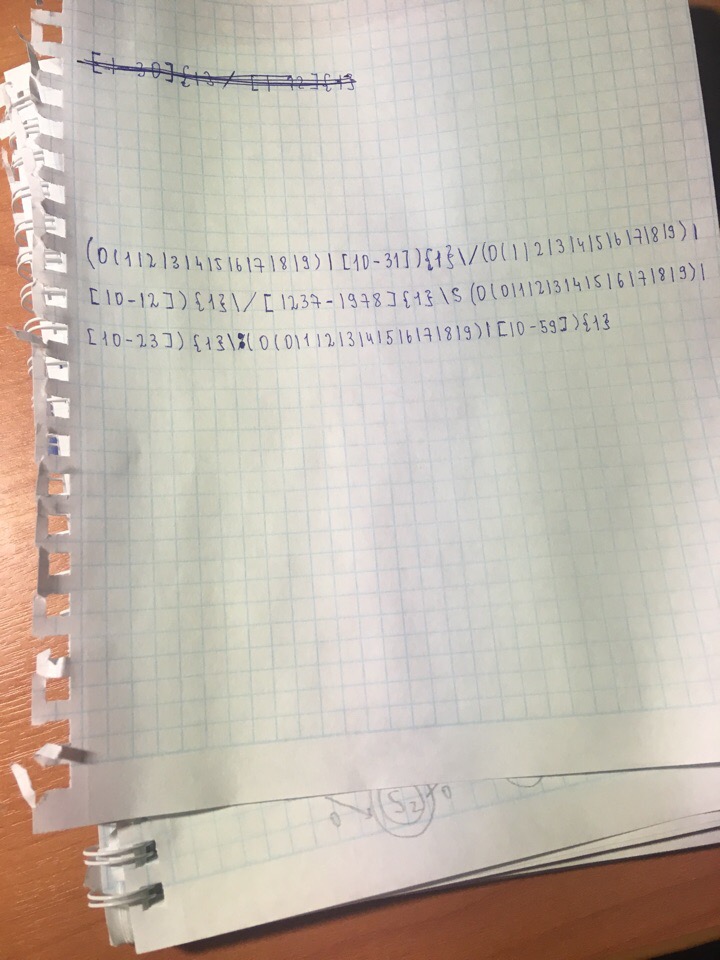 [1-30]{1}/ [1-12]{1}
(0(1|2|3|4|5|6|7|8|9)|[10-31]){1}\/(0(1|2|3|4|5|6|7|8|9)|
[10-12]){1}\/[1237-1978]{1}\s(0(0|1|2|3|4|5|6|7|8|9)|
[10-23]){1}\:(0(0|1|2|3|4|5|6|7|8|9)|[10-59]){1}
S2 0
0